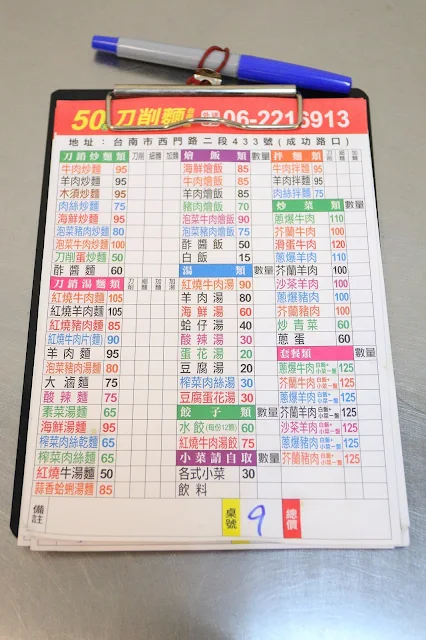 50年刀削麵 06-2216913
地址：台南市西門路二段433號(成功路口)
刀削炒麵類
牛肉炒麵 95
羊肉炒麵 95
木須炒麵 95
肉絲炒麵 75
海鮮炒麵 95
泡菜豬肉炒麵 80
泡菜牛肉炒麵 100
刀削蛋炒麵 50
酢醬麵 60
刀削湯麵類 刀削 細麵 加麵 加湯
紅燒牛肉麵 105
紅燒羊肉麵 105
紅燒豬肉麵 85
紅燒牛肉片(麵) 90
羊肉麵 95
泡菜豬肉湯麵 80
大滷麵 75
酸辣麵 75
素菜湯麵 65
海鮮湯麵 95
榨菜肉絲乾麵 65
榨菜肉絲麵 65
紅燒牛湯麵 50
蒜香蛤蜊湯麵 85
燴飯類 數量
海鮮燴飯 85
牛肉燴飯 85
羊肉燴飯 85
豬肉燴飯 70
泡菜牛肉燴飯 90
泡菜豬肉燴飯 75
酢醬飯 50
白飯 15
湯類 數量
紅燒牛肉湯 90
羊肉湯 80
海鮮湯 60
蛤仔湯 40
酸辣湯 30
蛋花湯 20
豆腐湯 20
榨菜肉絲湯 30
豆腐蛋花湯 30
餃子類 數量
水餃(每份12顆) 60
紅燒牛肉湯餃 75
小菜請自取 數量
各式小菜 30
飲料
拌麵類
牛肉拌麵 95
羊肉拌麵 95
肉絲拌麵 75
炒菜類 數量
蔥爆牛肉 110
芥蘭牛肉 100
滑蛋牛肉 120
蔥爆羊肉 110
芥蘭羊肉 100
沙茶羊肉 100
蔥爆豬肉 100
芥蘭豬肉 100
炒青菜 60
蔥蛋 60
套餐類 數量
蔥爆牛肉 白飯+小菜一盤 125
芥蘭牛肉 白飯+小菜一盤 125
蔥爆羊肉 白飯+小菜一盤 125
芥蘭羊肉 白飯+小菜一盤 125
沙茶羊肉 白飯+小菜一盤 125
蔥爆豬肉 白飯+小菜一盤 125
芥蘭豬肉 白飯+小菜一盤 125
備註
桌號 9 總價